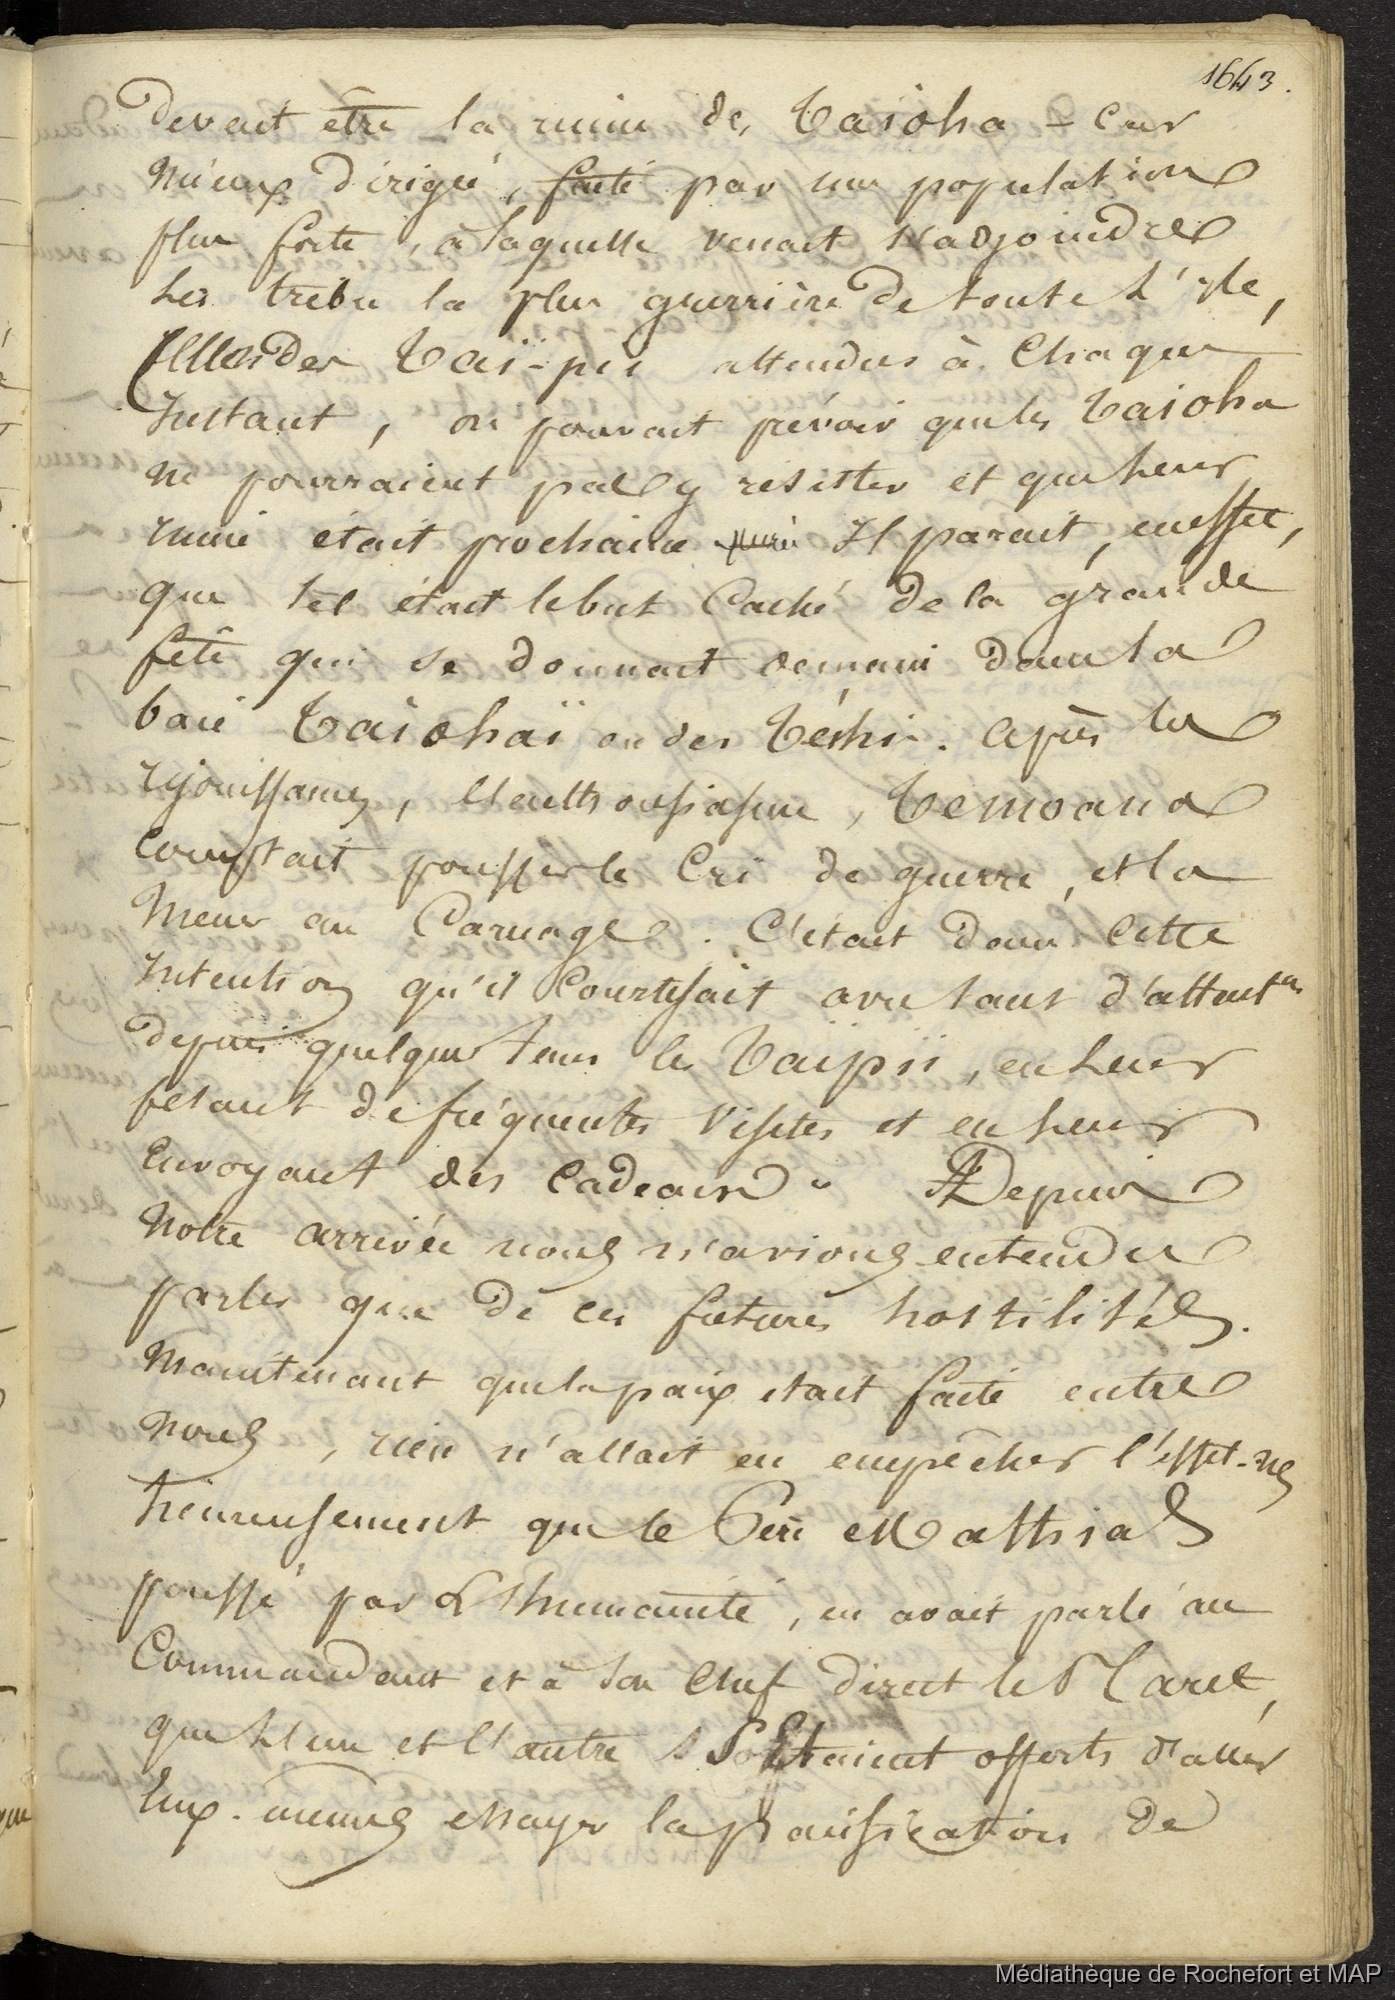 1643.
devait être la ruine de, Taïoha - Car
Mieux dirigé, faite par une population
plus forte, à laquelle venait s'adjoindre
les tribu la plus guerrière de toute L'Ile,
Celles des Taï-pii attendus à Chaque
Instant, on pouvait prévoir que les Taioha
ne pourraient pas y résister et que leur
ruine était prochaine Il parait, en effet,
que tel était le but Caché de la grande
fête qui se donnait demain dans la
baie Taïohaï ou des Téihi. Après les
réjouissances, l'enthousiasme, Témoana
Comptait pousser le Cri de guerre, et la
Mener au Carnage. C'était dans Cette
Intention qu'il Courtisait avec tant d'attentn
depuis quelque tems les Taïpii, en leur
fesant de fréquentes Visites et en leur
Envoyant des Cadeaux. Depuis
Notre arrivée nous n'avions entendu
parler que de ces futures hostilités.
Maintenant que la paix était faite entre
nous, rien n'allait en empêcher l'effet.
heureusement que le Père Matthias
poussé par L'humanité, en avait parlé au
Commandant et à son Chef direct le Pl Caret,
que L'un et l'autre s'étaient offerts d'aller
Eux-mêmes essayer la pacification de
Médiathèque de Rochefort et MAP